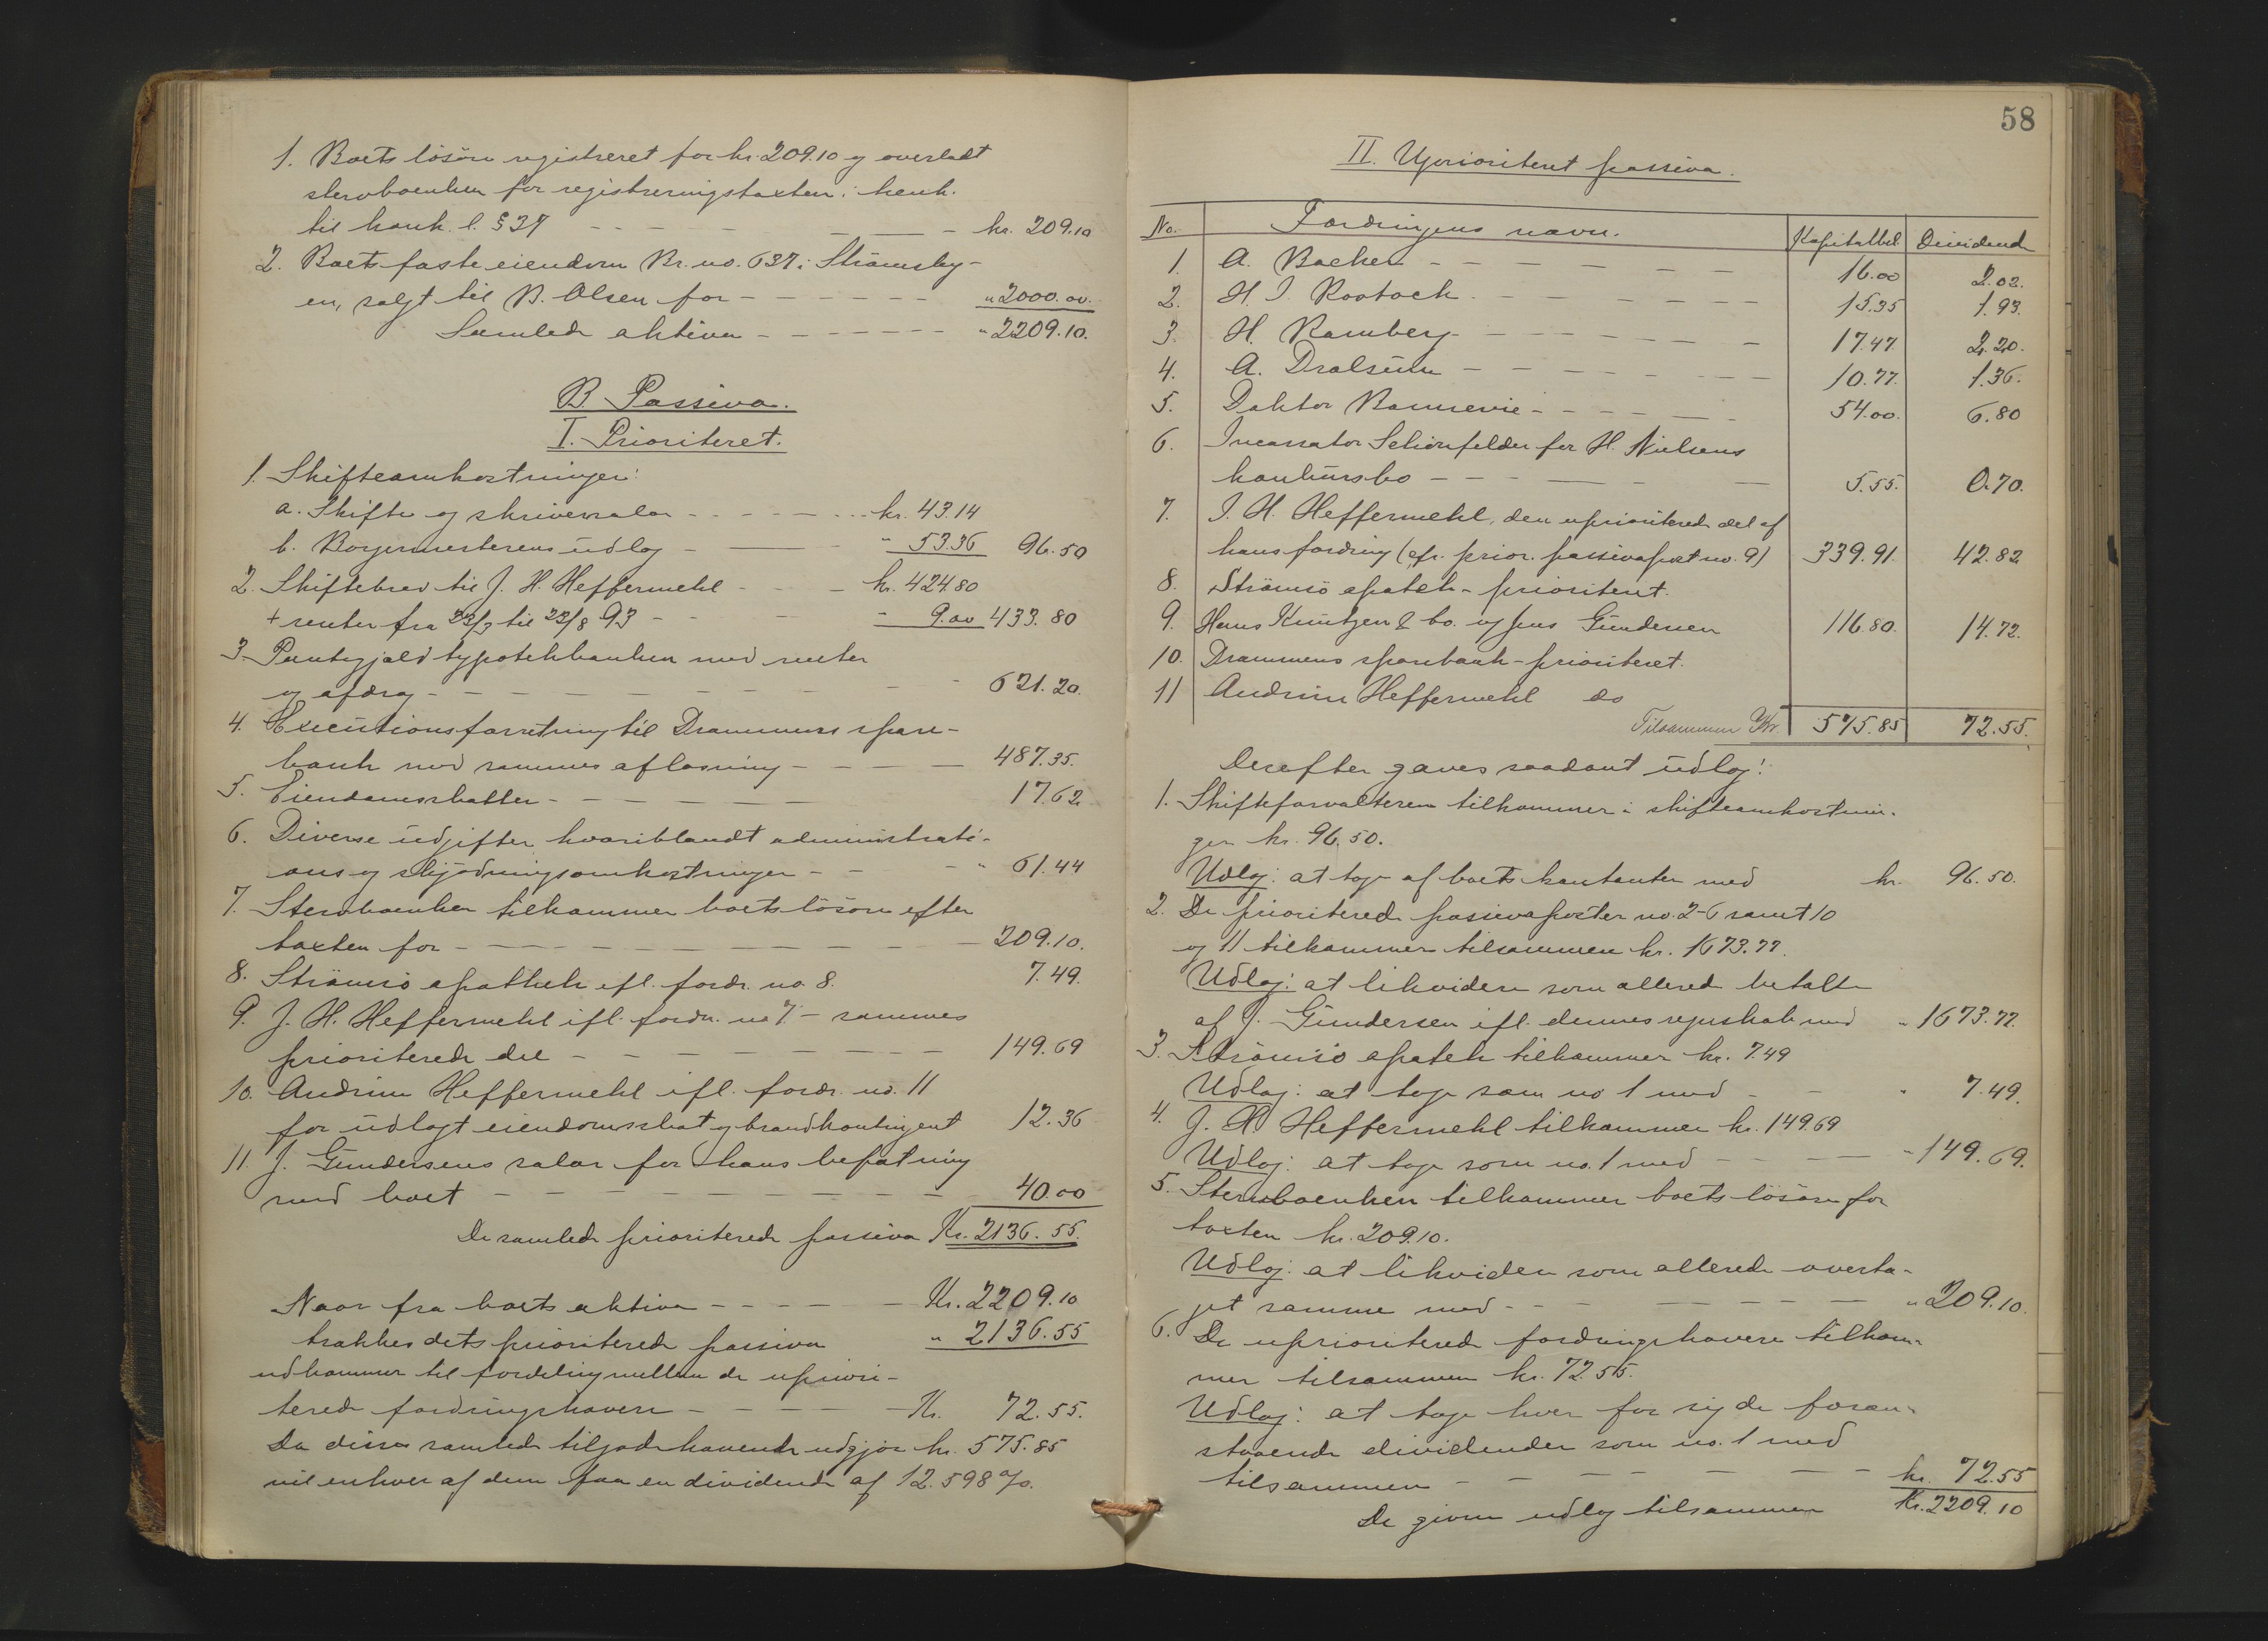 1. Boets lösöre registreret for kr. 209.10 og overladt
stervboenken for registreringstaxten i henh.
til konk. l. § 37 - - - - - kr. 209.10
2. Boets faste eiendom Br. no. 637 i Strömsby-
en, solgt til B. Olsen for - - - - - - " 2000.00.
Samlede aktiva - - - - - - - " 2209.10.
B. Passiva.
I. Prioriteret.
1. Skifteomkostninger:
a. Skifte og skriversalar - - - - - - kr. 43.14
b. Borgermesterens udlæg - - " 53.36 96.50
2. Skiftebrev til J. H. Heffermehl - - - kr. 424.80
+ renter fra 22/3 til 22/8 93 - - - " 9.00 433.80
3. Pantegjæld hypotekbanken med renter
og afdrag - - - - - - - - - - 621.20.
4. Executionsforretning til Drammens spare-
bank med sammes aflæsning - - - - 487.35.
5. Eiendomsskatter - - - - - - 17.62
6. Diverse udgifter, hvoriblandt administrati-
ons og skjödningsomkostninger - - - " 61.44
7. Stervboenken tilkommer boets lösöre efter
taxten for - - - - - - - - - 209.10.
8. Strömsö apothek ifl. fordr. no. 8. 7.49.
9. J. H. Heffermehl ifl. fordr. no 7. - sammes
prioriterede del - - - - - - - - 149.69
10. Andrine Heffermehl ifl. fordr. no. 11
for udlagt eiendomsskat og brandkontingent 12.36
11. J. Gundersens salar for hans befatning
med boet - - - - - - - - - 40.00
De samlede prioriterede passiva Kr. 2136.55.
Naar fra boets aktiva - - - - - Kr. 2209.10
trækkes dets prioriterede passiva " 2136.55
udkommer til fordeling mellem de upriori-
terede fordringshavere - - - - - Kr. 72.55.
Da disses samlede tilgodehavende udgjör kr. 575.85
vil enhver af dem faa en dividende af 12.598 %.
58
II. Uprioriteret passiva.
No. Fordringens navn. Kapitalbel. Dividend
1. A. Bache - - - - - - - 16.00 2.02.
2. H. J. Rostock - - - - - - - 15.35 1.93.
3. H. Ramberg - - - - - - - 17.47 2.20.
4. A. Dralsum - - - - - - - 10.77. 1.36.
5. Doktor - - - - - - 54.00. 6.80
6. Incassator Schönfelder for H. Nielsens
konkursbo - - - - - - 5.55. 0.70.
7. J. H. Heffermehl, den uprioriterede del af
hans fordring (cfr. prior. passivapost no. 9) 339.91. 42.82
8. Strömsö apotek - prioriteret.
9. Hans Kiøntzen & Co. og Jens Gundersen 116.80. 14.72.
10. Drammens sparebank - prioriteret.
11 Andrine Heffermehl do
Tilsammen Kr. 575.85 72.55.
Derefter gaves saadant udlæg:
1. Skifteforvalteren tilkommer i skifteomkostnin-
ger kr. 96.50.
Udlæg: at tage af boets kontanter med kr. 96.50.
2. De prioriterede passivaposter no. 2-6 samt 10
og 11 tilkommer tilsammen kr. 1673.77.
Udlæg: at likvidere som allerede betalt
af J. Gundersen ifl. dennes regnskab med " 1673.77.
3. Strömsö apotek tilkommer kr. 7.49
Udlæg: at tage som no 1 med - - " 7.49.
4. J. H. Heffermehl tilkommer kr. 149.69
Udlæg: at tage som no. 1 med - - - - " 149.69.
5. Stervboenken tilkommer boets lösöre for
taxten kr. 209.10.
Udlæg: at likvidere som allerede overta-
get samme med - - - - - - - " 209.10.
6. De uprioriterede fordringshavere tilkom-
mer tilsammen kr. 72.55.
Udlæg: at tage hver for sig de foran-
staaende dividender som no. 1 med
tilsammen - - - - - - - kr. 72.55
De givne udlæg tilsammen Kr. 2209.10